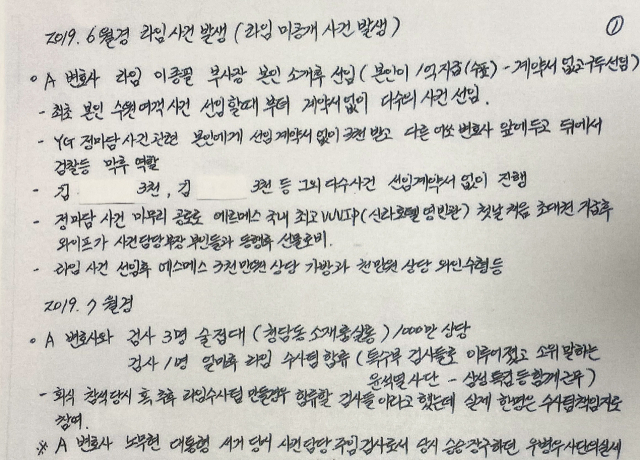 2019. 6월경 라임사건 발생 (라임 미공개 사건 발생)
①
○ A 변호사 라임 이종필 부사장 본인 소개후 선임 (본인이 1억지급(수표) - 계약서 없고 구두선임)
- 최초 본인 수원여객 사건 선임할때 부터 계약서없이 다수의 사건 선임.
- YG 정마담 사건 관련 본인에게 선임계약서 없이 3천 받고 다른 여쏘 변호사 앞에두고 뒤에서
검찰등 막후 역할
- 김 3천, 김 3천 등 그외 다수사건 선임계약서 없이 진행
- 정마담 사건 마무리 공로로 에르메스 국내 최고 VVIP (신라호텔 영빈관) 첫날 처음 초대권 지급후
와이프가 사건담당부장 부인들과 동행후 선물로비.
- 라임 사건 선임후 에르메스 3천만원 상당 가방과 천만원 상당 와인수령등
2019. 7월경
○ A 변호사와 검사 3명 술접대 (청담동 소재 룸살롱) 1000만 상당
검사 1명 얼마후 라임 수사팀 합류 (특수부 검사들로 이루어졌고 소위 말하는
윤석열 사단 - 삼성특검등 함께근무)
- 회식 참석당시 혹 추후 라임수사팀 만들경우 합류할 검사들이라고 했는데 실제 한명은 수사팀책임자로
참여.
※ A 변호사 노무현 대통령 서거 당시 사건담당 주임검사로서 당시 승승장구하던 우병우사단의실세